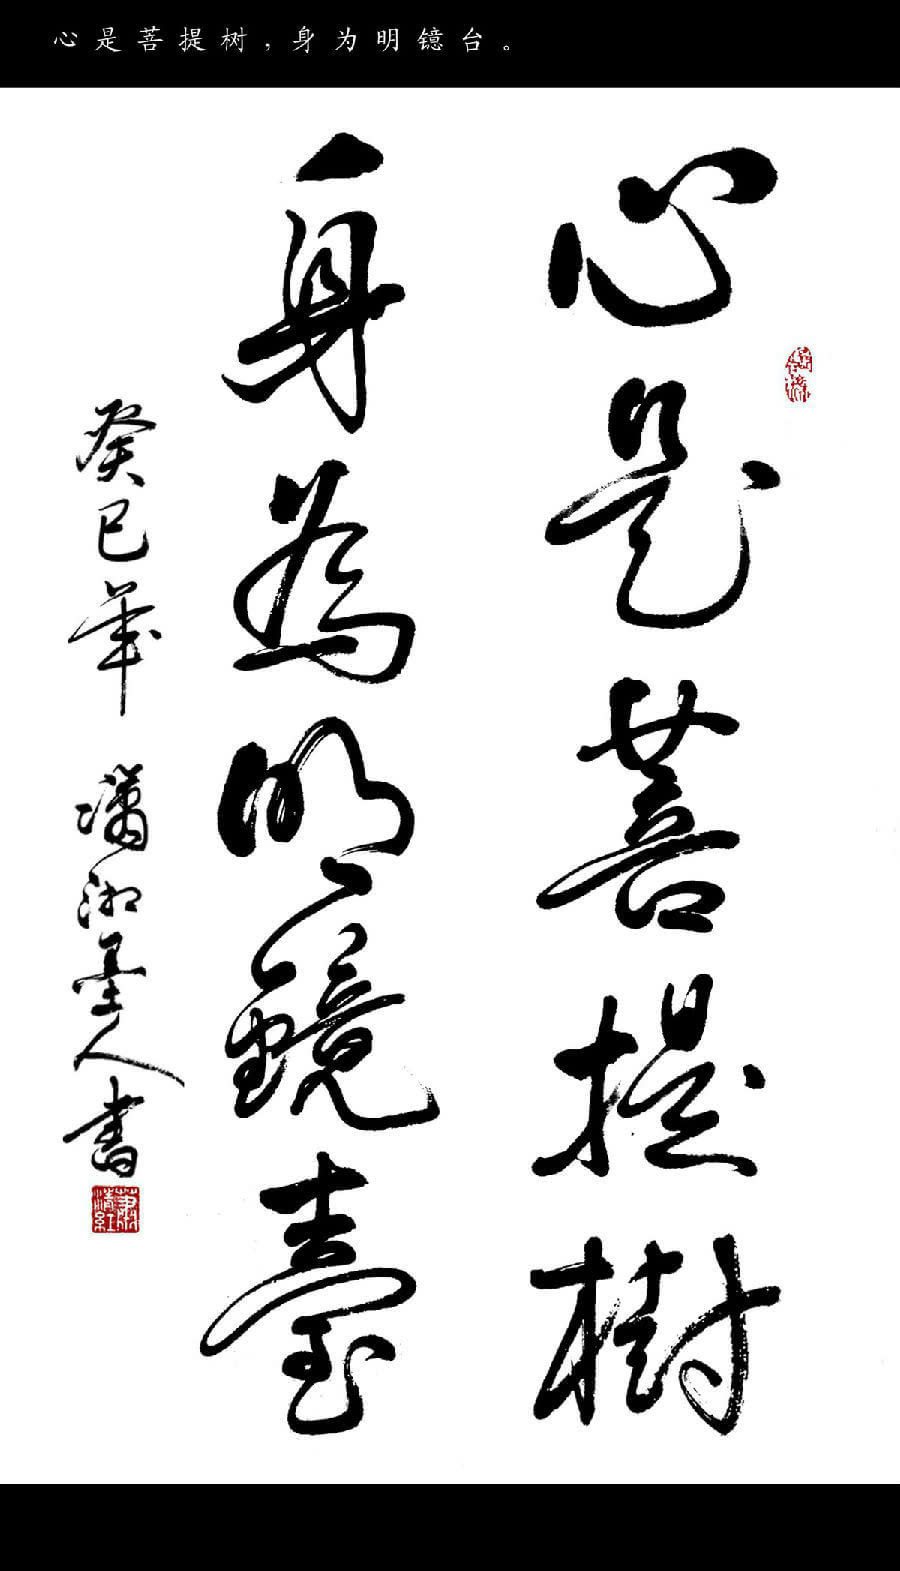 心是菩提树，身为明镜台。
心是菩提樹
身為明鏡臺
癸巳年 瀟湘墨人書